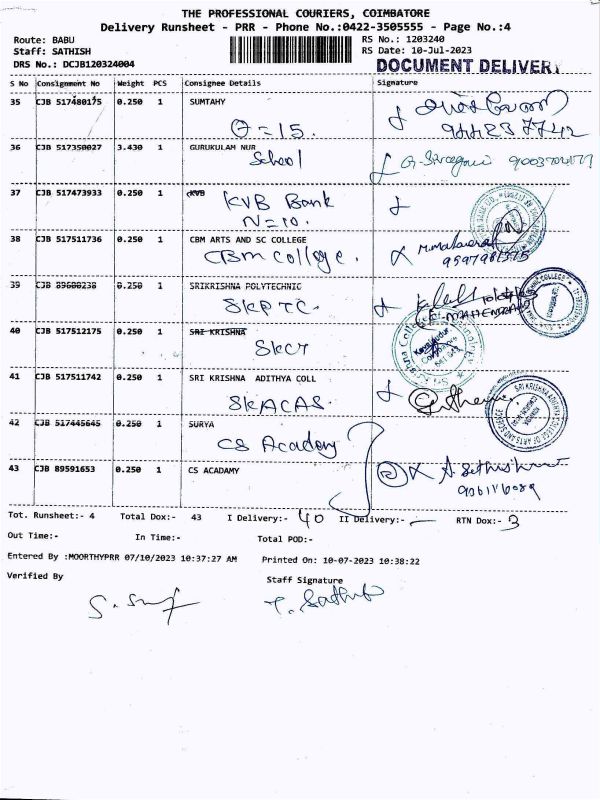 THE PROFESSIONAL COURIERS, COIMBATORE
Delivery Runsheet - PRR - Phone No.:0422-3505555 - Page No.:4
Route: BABU RS No.: 1203240
Staff: SATHISH RS Date: 10-Jul-2023
DRS No.: DCJB120324004 DOCUMENT DELIVERY
S No Consignment No Weight PCS Consignee Details Signature
35 CJB 517480175 0.250 1 SUMTAHY
Θ=15.
36 CJB 517350027 3.430 1 GURUKULAM NUR
School
37 CJB 517473933 0.250 1 KVB
KVB Bank
N=10.
38 CJB 517511736 0.250 1 CBM ARTS AND SC COLLEGE
CBM College. 9597981375
39 CJB 89600238 0.250 1 SRIKRISHNA POLYTECHNIC
SKPTC.
40 CJB 517512175 0.250 1 SRI KRISHNA
SKCT
41 CJB 517511742 0.250 1 SRI KRISHNA ADITHYA COLL
SKACAS.
42 CJB 517445645 0.250 1 SURYA
CS Academy
43 CJB 89591653 0.250 1 CS ACADAMY
Tot. Runsheet:- 4 Total Dox:- 43 I Delivery:- 40 II Delivery:- — RTN Dox:- 3
Out Time:- In Time:- Total POD:-
Entered By :MOORTHYPRR 07/10/2023 10:37:27 AM Printed On: 10-07-2023 10:38:22
Verified By Staff Signature
T. Sathish